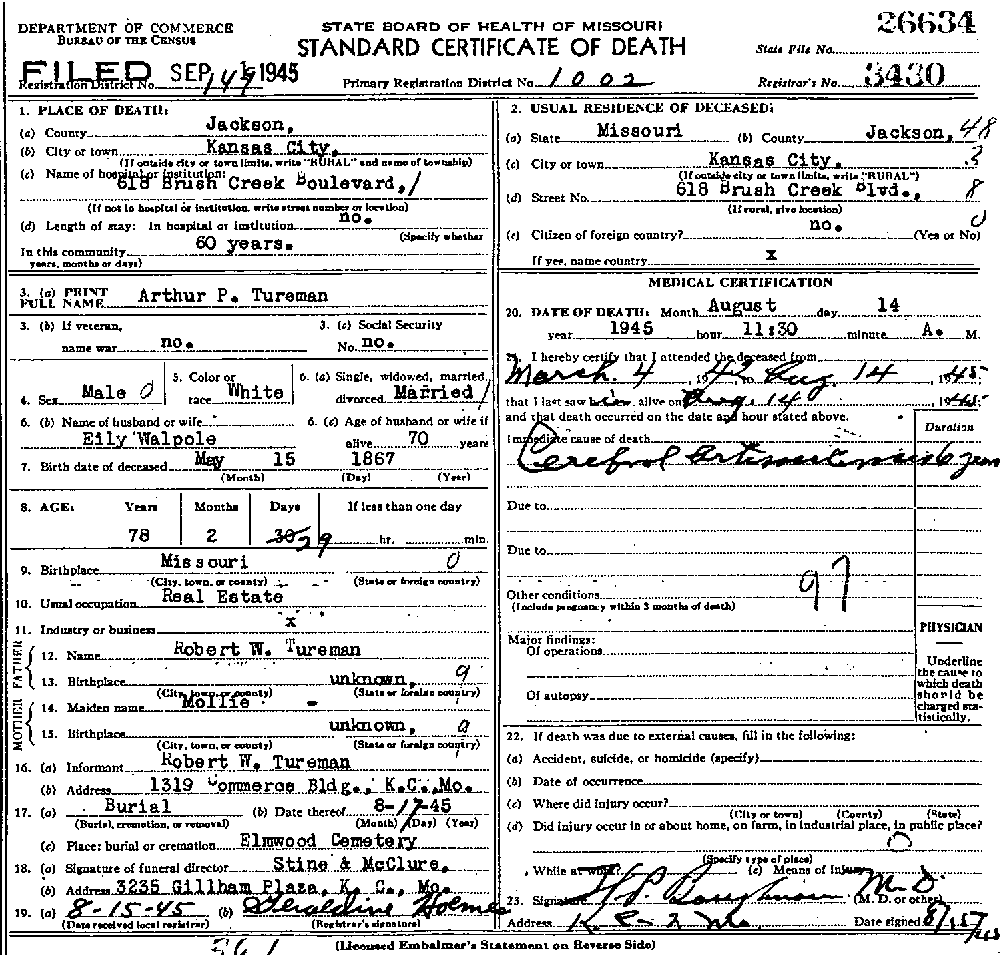 DEPARTMENT OF COMMERCE
BUREAU OF THE CENSUS
STATE BOARD OF HEALTH OF MISSOURI
STANDARD CERTIFICATE OF DEATH
26634
State File No.
FILED SEP 1945
Registration District No. 149
Primary Registration District No. 1002
Registrar's No. 3430
1. PLACE OF DEATH:
(a) County Jackson,
(b) City or town Kansas City,
(If outside city or town limits, write "RURAL" and name of township)
(c) Name of hospital or institution:
618 Brush Creek Boulevard, 1
(If not in hospital or institution, write street number or location)
(d) Length of stay: In hospital or institution no.
(Specify whether
In this community 60 years.
years, months or days)
2. USUAL RESIDENCE OF DECEASED:
(a) State Missouri (b) County Jackson, 48
(c) City or town Kansas City, 3
(If outside city or town limits, write "RURAL")
(d) Street No. 618 Brush Creek Blvd., 8
(If rural, give location)
(e) Citizen of foreign country? no. 0 (Yes or No)
If yes, name country x
3. (a) PRINT FULL NAME Arthur P. Tureman
3. (b) If veteran, name war no.
3. (c) Social Security No. no.
4. Sex Male 0
5. Color or race White
6. (a) Single, widowed, married, divorced Married 1
6. (b) Name of husband or wife Eily Walpole
6. (c) Age of husband or wife if alive 70 years
7. Birth date of deceased May 15 1867
(Month) (Day) (Year)
8. AGE: Years Months Days If less than one day
78 2 30 29 hr. min.
9. Birthplace Missouri 0
(City, town, or county) (State or foreign country)
10. Usual occupation Real Estate
11. Industry or business x
FATHER
12. Name Robert W. Tureman
13. Birthplace unknown, 9
(City, town, or county) (State or foreign country)
MOTHER
14. Maiden name Mollie -
15. Birthplace unknown, 9
(City, town, or county) (State or foreign country)
16. (a) Informant Robert W. Tureman
(b) Address 1319 Commerce Bldg., K.C., Mo.
17. (a) Burial (b) Date thereof 8-17-45
(Burial, cremation, or removal) (Month) (Day) (Year)
(c) Place: burial or cremation Elmwood Cemetery
18. (a) Signature of funeral director Stine & McClure,
(b) Address 3235 Gillham Plaza, K. C., Mo.
19. (a) 8-15-45 (b) Geraldine Holmes
(Date received local registrar) (Registrar's signature)
MEDICAL CERTIFICATION
20. DATE OF DEATH: Month August day 14
year 1945 hour 11:30 minute A. M.
21. I hereby certify that I attended the deceased from
March 4, 1942 to Aug. 14, 1945
that I last saw him alive on Aug. 14, 1945
and that death occurred on the date and hour stated above.
Duration
Immediate cause of death
Cerebral 6 years
Due to
Due to
97
Other conditions
(Include pregnancy within 3 months of death)
Major findings:
Of operations
Of autopsy
PHYSICIAN
Underline the cause to which death should be charged statistically.
22. If death was due to external causes, fill in the following:
(a) Accident, suicide, or homicide (specify)
(b) Date of occurrence
(c) Where did injury occur?
(City or town) (County) (State)
(d) Did injury occur in or about home, on farm, in industrial place, in public place?
0
(Specify type of place)
While at work? (e) Means of injury
23. Signature M.D. (M. D. or other)
Address K. C. Mo Date signed 8/15/45
(Licensed Embalmer's Statement on Reverse Side)